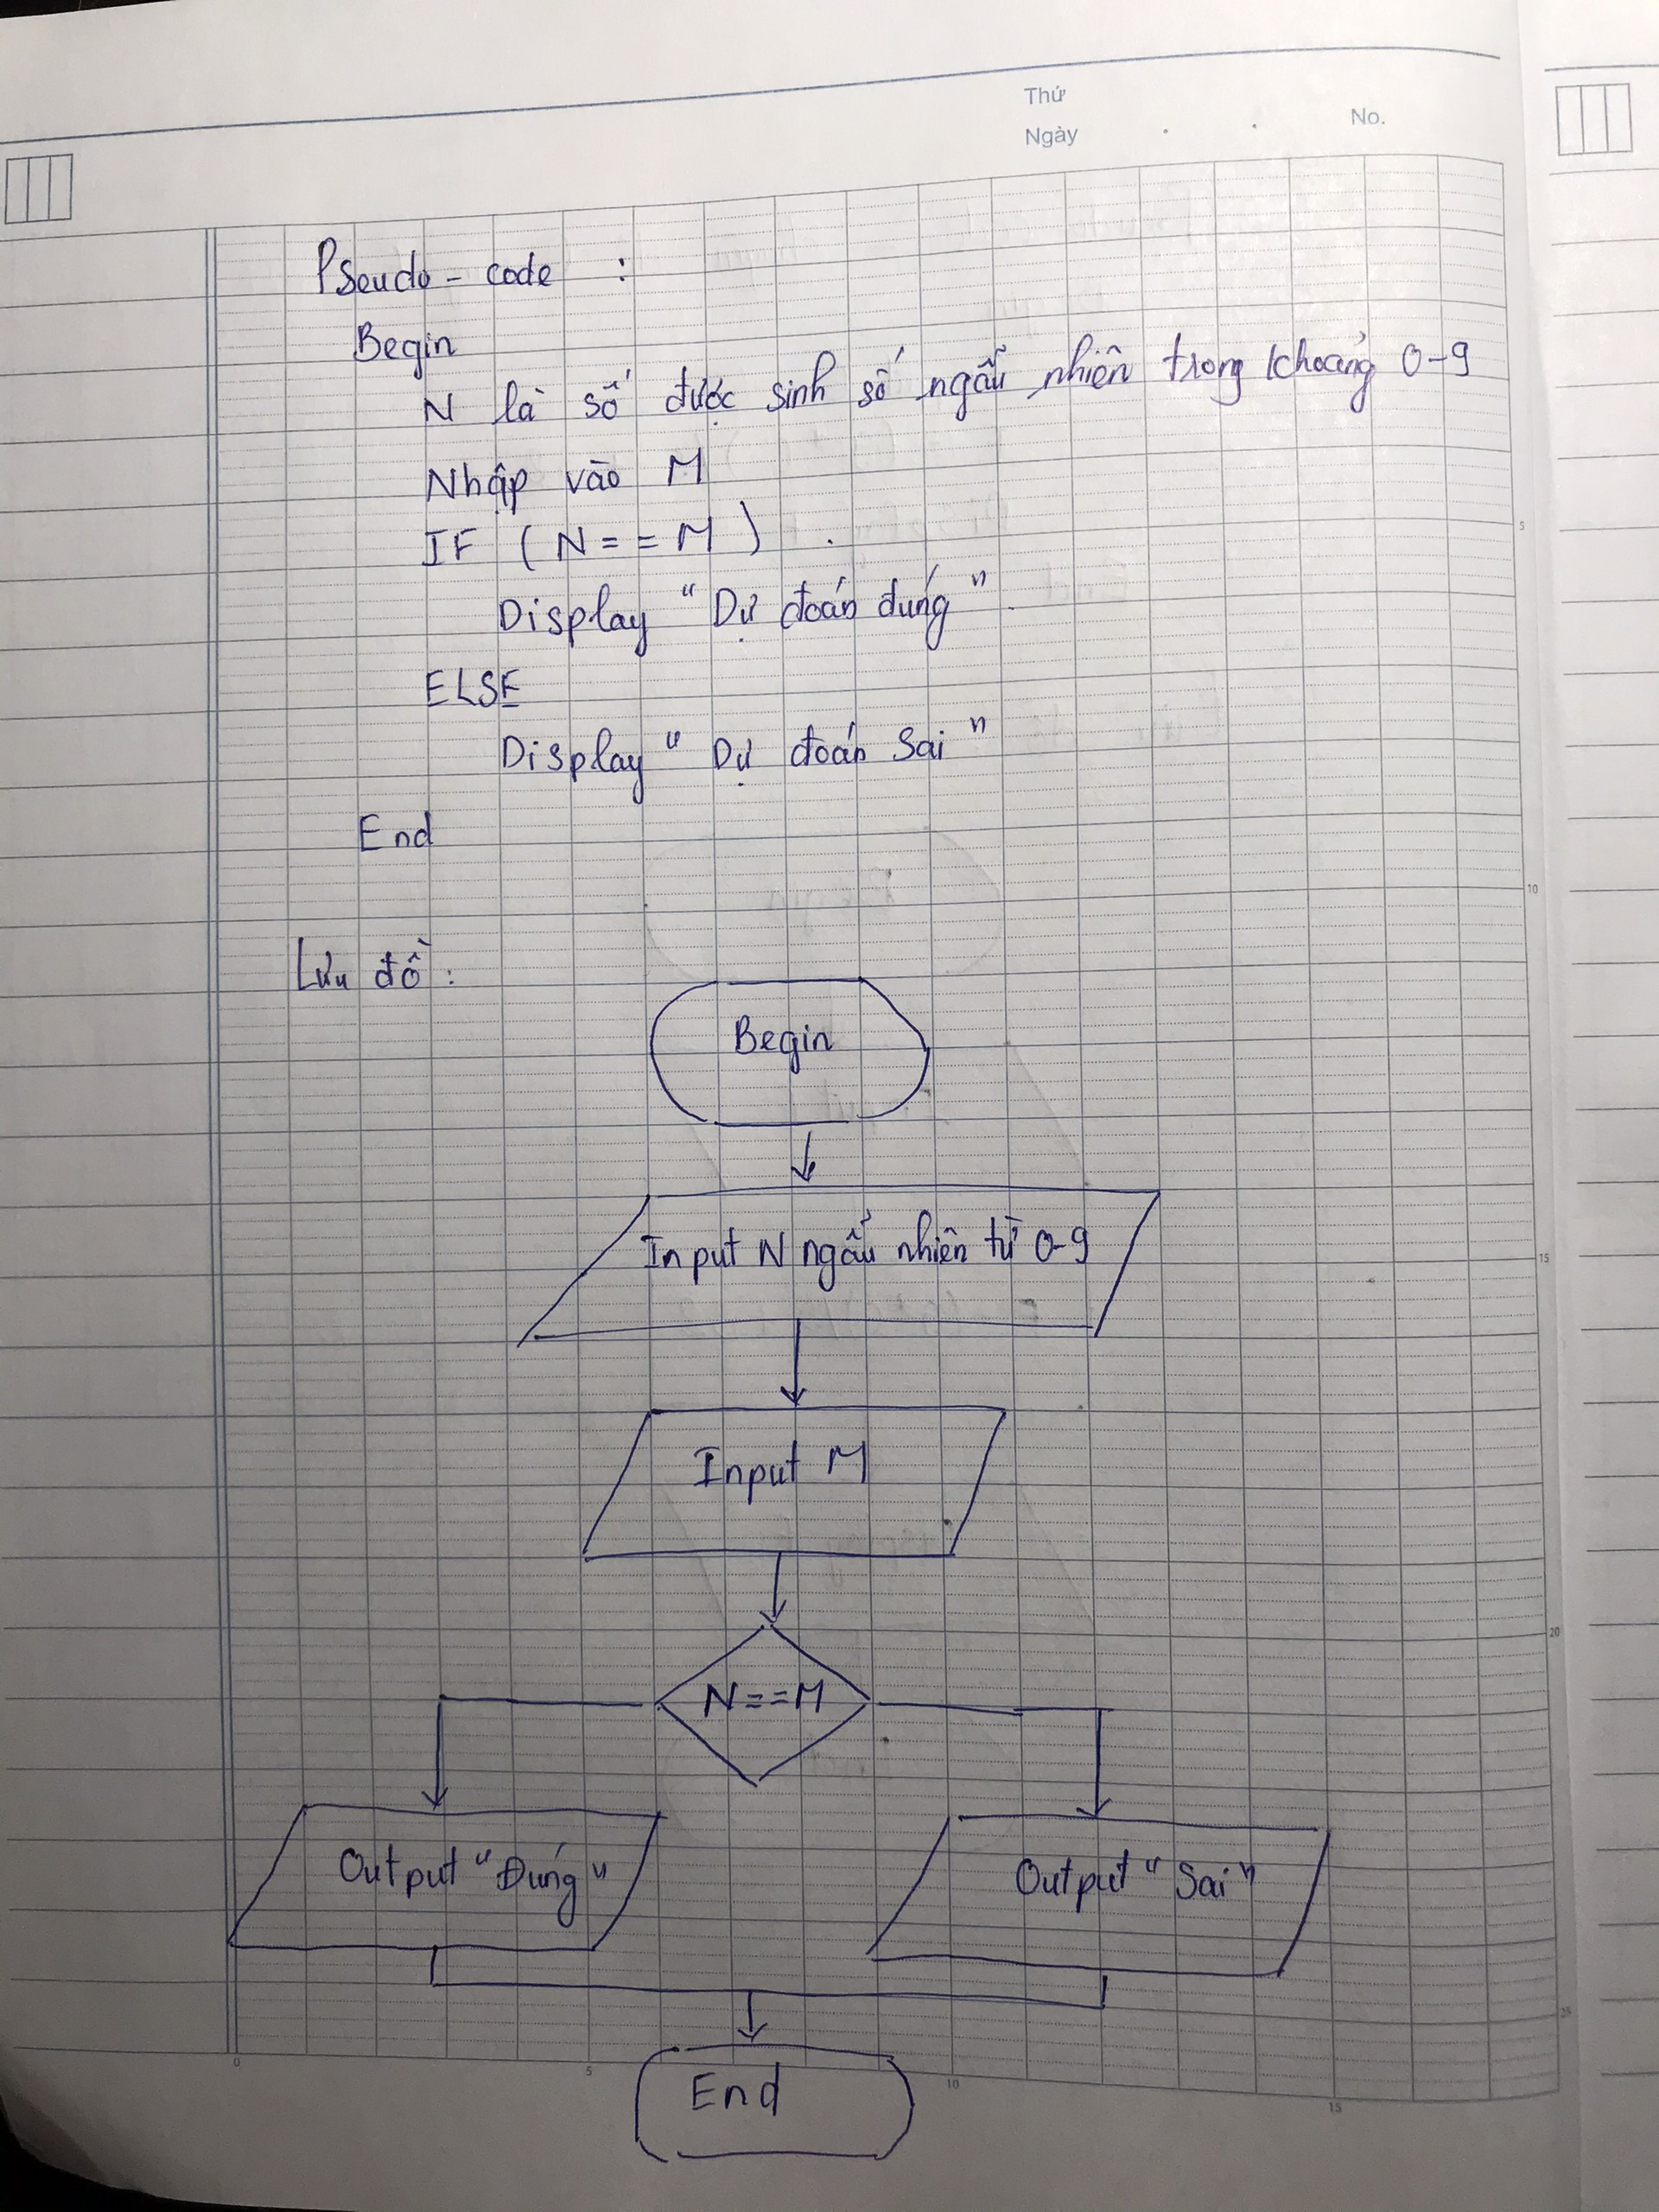 Thứ
Ngày
No.
Pseudo - code :
Begin
N là số được sinh số ngẫu nhiên trong khoảng 0-9
Nhập vào M
IF ( N = = M )
Display “ Dự đoán đúng ”
ELSE
Display “ Dự đoán Sai ”
End
Lưu đồ :
Begin
Input N ngẫu nhiên từ 0-9
Input M
N = = M
Output “ Đúng ”
Output “ Sai ”
End
5
10
15
20
25
0
5
10
15